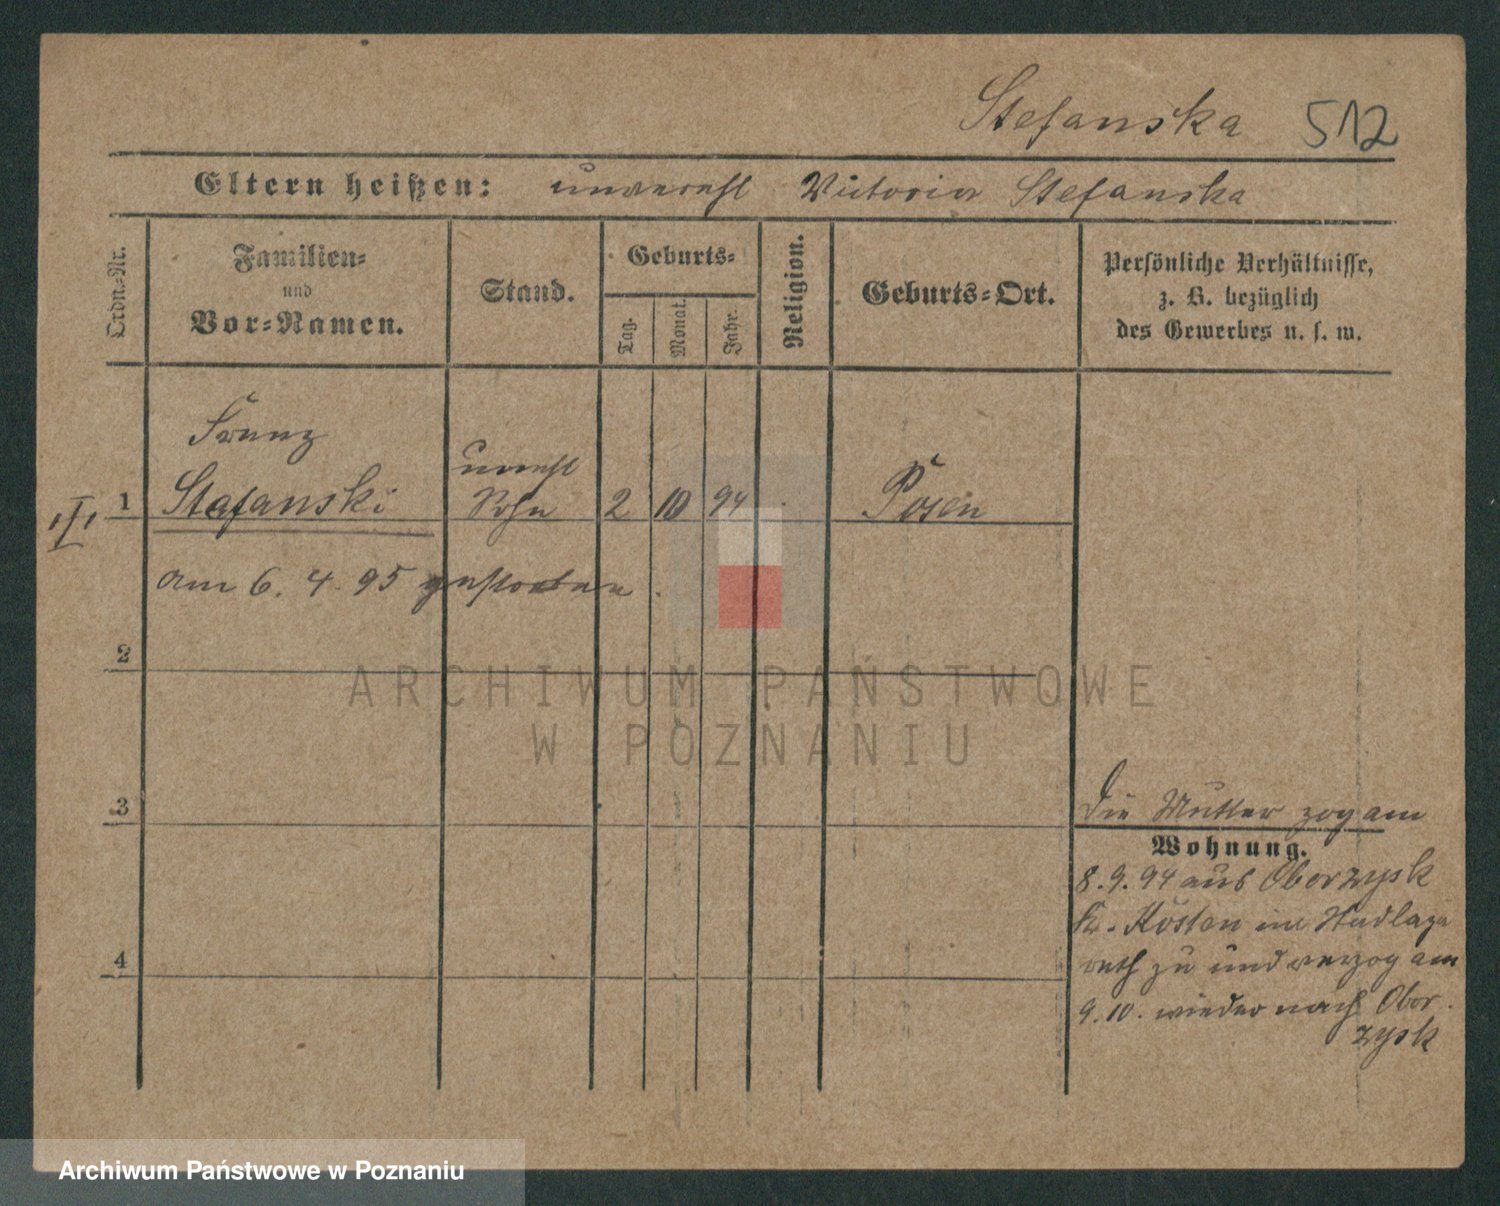 Stefanska 512
Eltern heißen: unverehl Victoria Stefanska
Ordn.-Nr.
Familien-
und
Vor-Namen.
Stand.
Geburts-
Tag.
Monat.
Jahr.
Religion.
Geburts-Ort.
Persönliche Verhältnisse,
z. B. bezüglich
des Gewerbes u. s. w.
Franz
unehl
1 Stefanski Sohn 2 10 94 Posen
am 6. 4. 95 gestorben.
2
ARCHIWUM PAŃSTWOWE
W POZNANIU
3
Die Mutter zog am
Wohnung.
8. 9. 94 aus Oberzysk
Kr. Kosten ins Stadlaza
reth zu und verzog am
9. 10. wieder nach Ober
zysk
4
Archiwum Państwowe w Poznaniu